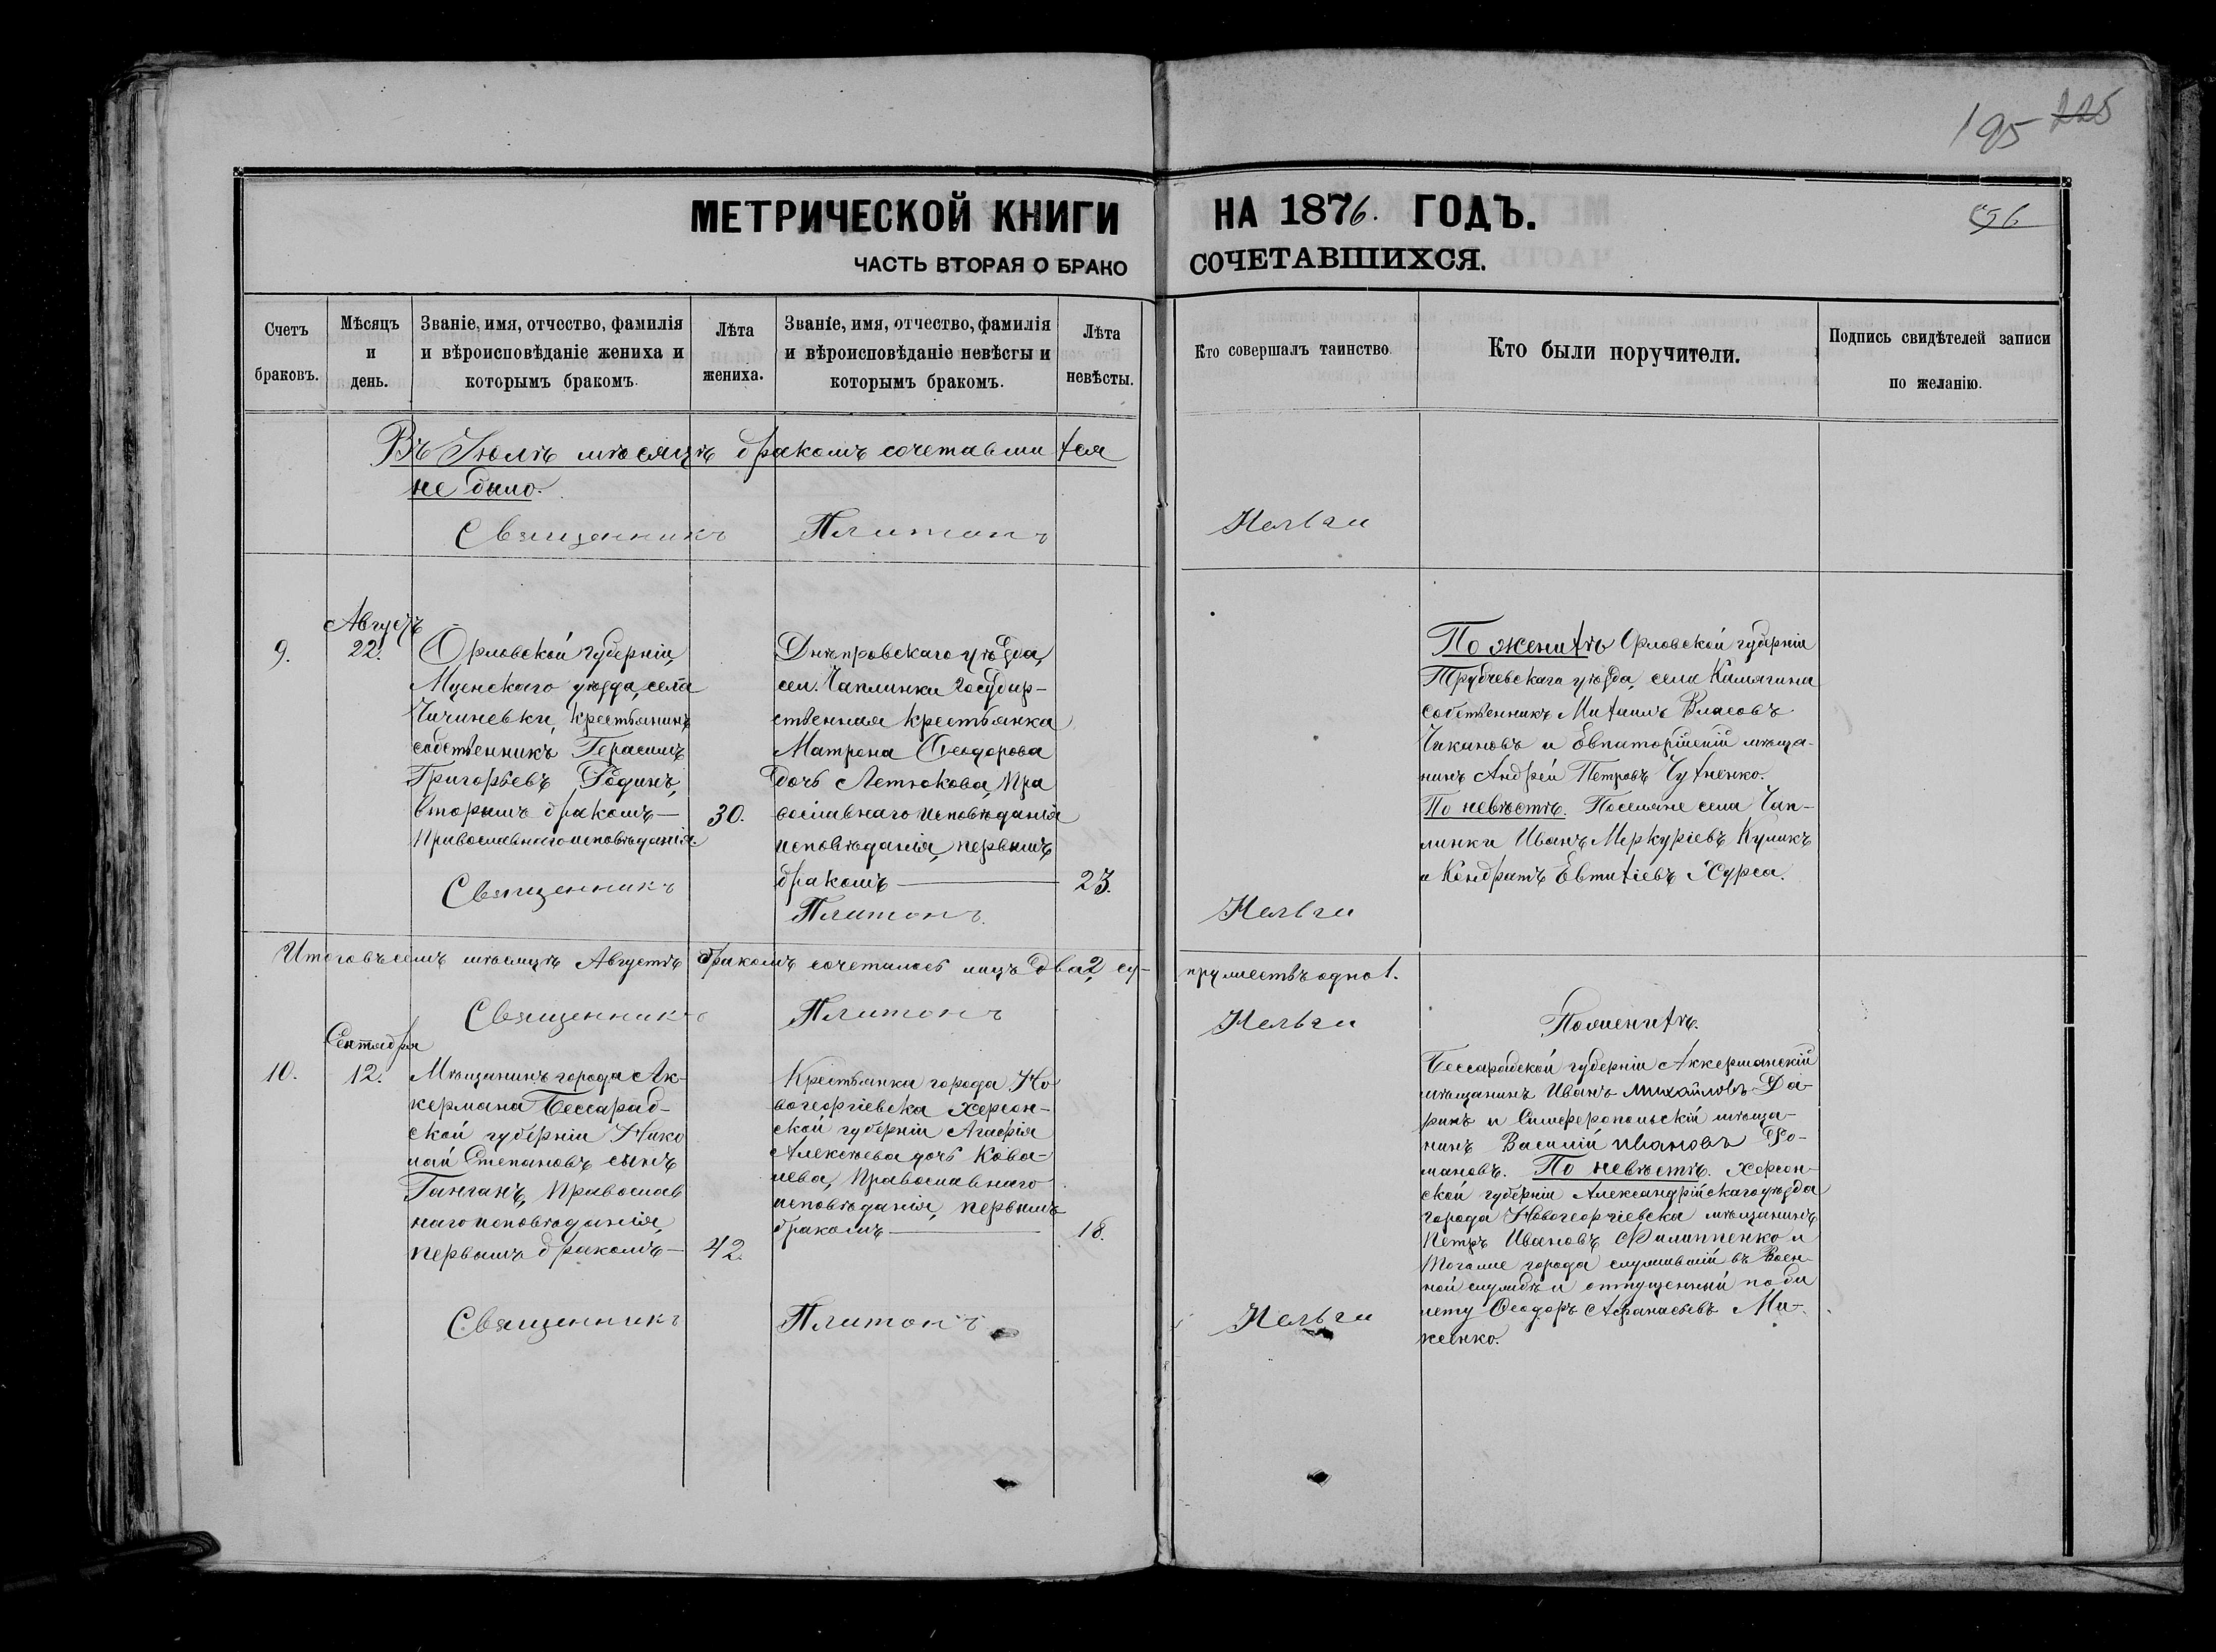 195 225
МЕТРИЧЕСКОЙ КНИГИ НА 1876. ГОДЪ.
ЧАСТЬ ВТОРАЯ О БРАКО СОЧЕТАВШИХСЯ.
Счетъ браковъ.
Мѣсяцъ и день.
Званіе, имя, отчество, фамилія
и вѣроисповѣданіе жениха и
которымъ бракомъ.
Лѣта
жениха.
Званіе, имя, отчество, фамилія
и вѣроисповѣданіе невѣсты и
которымъ бракомъ.
Лѣта
невѣсты.
Кто совершалъ таинство.
Кто были поручители.
Подпись свидѣтелей записи
по желанію.
Въ Іюлѣ мѣсяцѣ бракомъ сочетавшихся
не было.
Священникъ Платонъ
9.
Августъ
22.
Орловской губерніи,
Мценскаго уѣзда, села
крестьянинъ
собственникъ Герасимъ
Григорьевъ Родинъ,
вторымъ бракомъ—
православнаго исповѣданія.
30.
Днѣпровскаго уѣзда,
сел. Чаплинки государ-
ственная крестьянка
Матрона Ѳеодорова
дочь Летюкова, пра
вославнаго исповѣданія
исповѣданія, первымъ
бракомъ—
23.
Священникъ Платонъ
По женихѣ Орловской губерніи
Трубчевскаго уѣзда, села
собственникъ Михаилъ Власовъ
Чикановъ и Евпаторійскій мѣща-
нинъ Андрей Петровъ Чухненко.
По невѣстѣ. Поселяне села Чап-
линки Иванъ Меркуріевъ Куликъ
и Кондратъ Евтихіевъ Хурса.
Итого въ семъ мѣсяцѣ Августѣ бракомъ сочеталось лицъ два 2, су-
пружествъ одно 1.
Священникъ Платонъ
10.
Сентября
12.
Мѣщанинъ города Ак-
кермана Бессараб-
ской губерніи Нико
лай Степановъ сынъ
Ганганъ, православ
наго исповѣданія,
первымъ бракомъ—
42.
Крестьянка города Но
вогеоргіевска Херсон-
ской губерніи Агафія
Алексѣева дочь Кова-
лева, православнаго
исповѣданія, первымъ
бракомъ—
18.
Священникъ Платонъ
По женихѣ.
Бессарабской губерніи Аккерманскій
мѣщанинъ Иванъ Михайловъ Да-
ринъ и Симферопольскій мѣща-
нинъ Василій Ивановъ Ро-
мановъ. По невѣстѣ. Херсон-
ской губерніи Александрійскаго уѣзда
города Новогеоргіевска мѣщанинъ
Петръ Ивановъ Филиппенко и
тогоже города служившій въ Воен-
ной службѣ и отпущенный по би
лету Ѳеодоръ Афанасьевъ Ми-
кеенко.